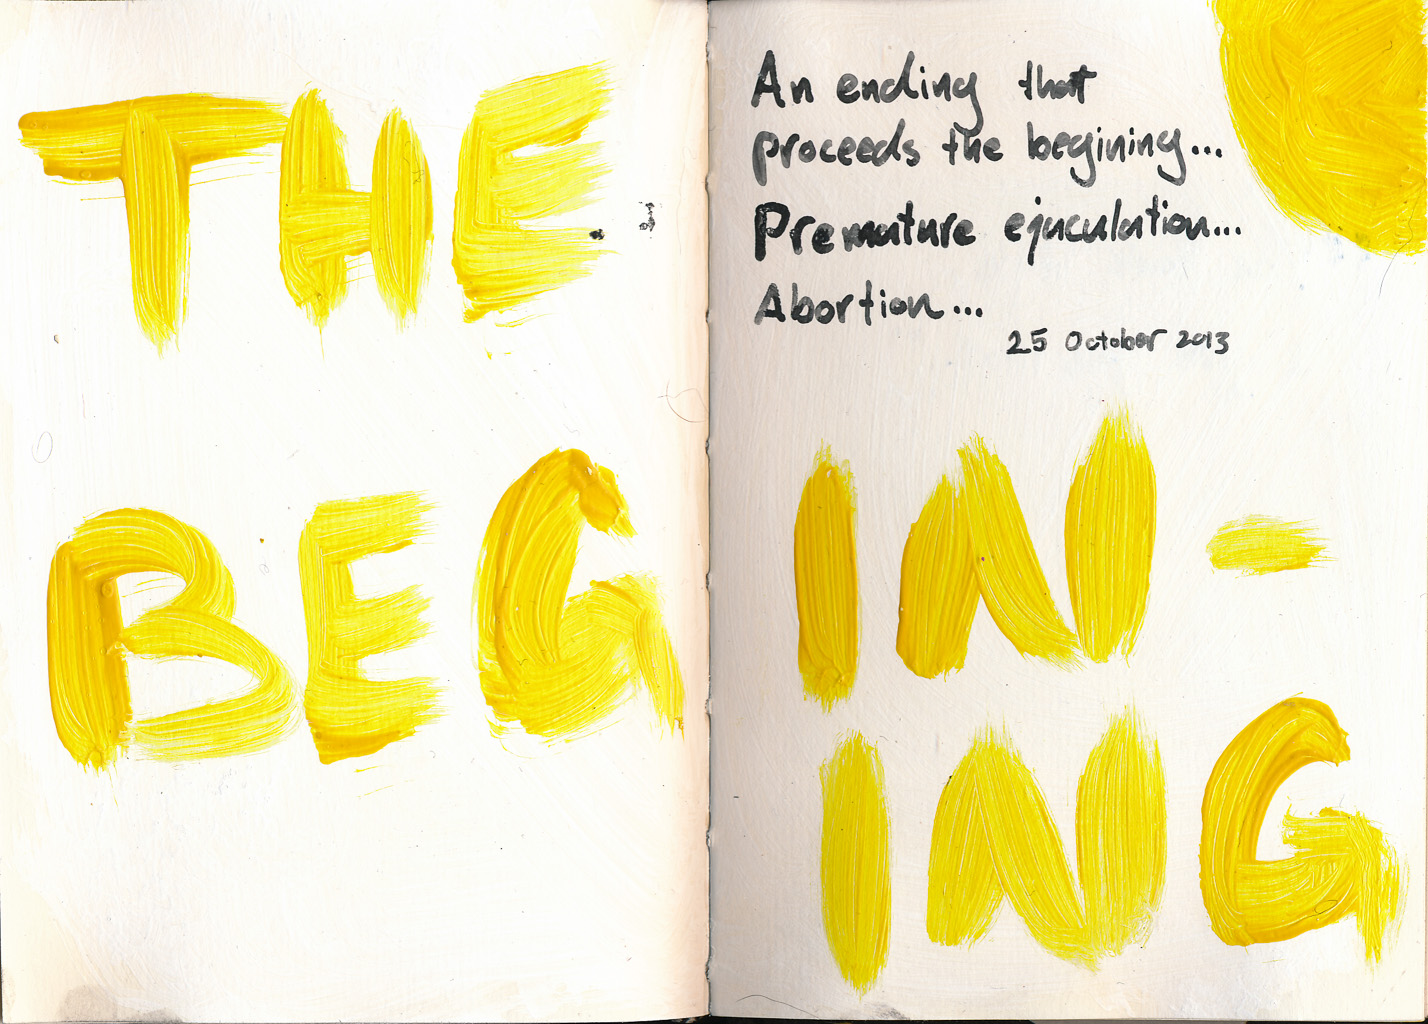 THE
BEG
An ending that
proceeds the begining...
Premature ejaculation...
Abortion...
25 October 2013
IN-
ING